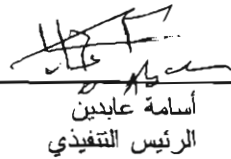 أسامة عابدين
الرئيس التنفيذي